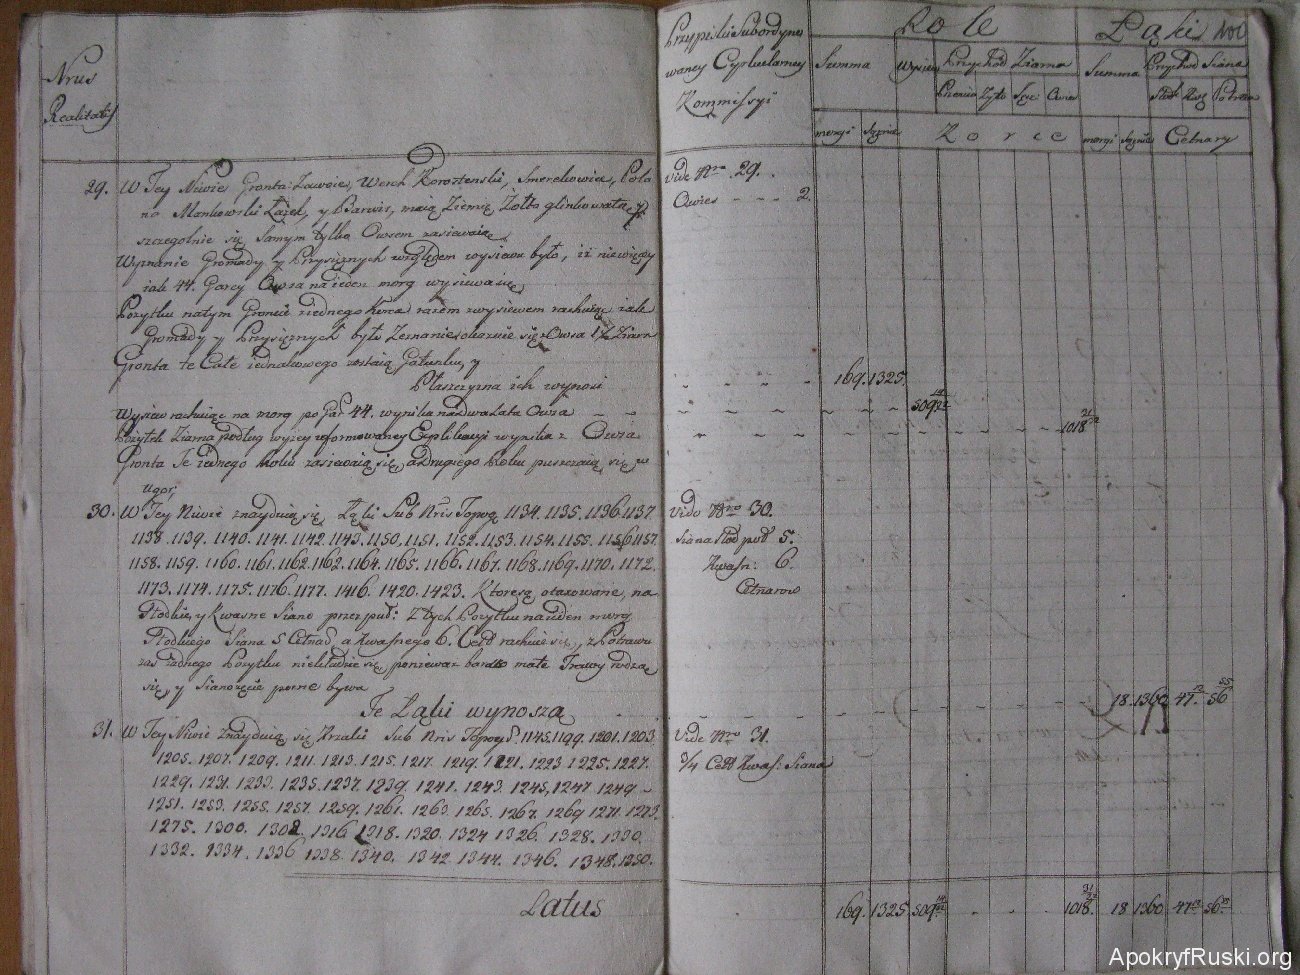 Nrus
Realitatis
29. W Tey Niwie Gronta: Zawoie, Werch Korostenski, Smerekowiec, Pola
na Mankowski Łazek, y Barwis, maią Ziemię Żółto glinkowatę y
szczegolnie się samym tylko Owsem zasiewaią
Wyznanie Gromady y Przysięznych względem wysiewu było, iż niewięcey
iak 44. Garcy Owsa na ieden morg wysiewaią,
Pozytku natym Groncie ziednego Korca razem zwysiewem rachuiąc iak
Gromady y Przysięznych było Zeznanie okazuie się Owsa Ziarn
Gronta te Całe iednakowego zostaią Gatunku, y
Płaszczyzna ich wynosi
Wysiew rachuiąc na morg po Gar 44. wynika na dwa Lata Owsa
Pozytek Ziarna podług wyżey uformowaney Explikacyi wynika z Owsa
Gronta Te iednego Roku zasiewaią się, a Drugiego Roku puszczaią się w
ugor,
30. W Tey Niwie znayduią się Łąki Sub Nris Topog. 1134. 1135. 1136. 1137.
1138. 1139. 1140. 1141. 1142. 1143. 1150. 1151. 1152. 1153. 1154. 1155. 1156. 1157.
1158. 1159. 1160. 1161. 1162. 1162. 1164. 1165. 1166. 1167. 1168. 1169. 1170. 1172.
1173. 1174. 1175. 1176. 1177. 1416. 1420. 1423. Ktore są otaxowane, na
Słodkie, y Kwasne Siano przez puł: Z tych Pozytku na ieden morg
Słodkiego Siana 5 Cetnar, a Kwasnego 6. Cetn rachuie się, z Potrawu
zas żadnego Pozytku niekładzie się, poniewaz bardzo małe Trawy rodzą
się, y Sianozęcie pozne bywa
Te Łąki wynoszą
31. W Tey Niwie Znayduią się Krzaki Sub Nris Topog. 1145. 1199. 1201. 1203.
1205. 1207. 1209. 1211. 1213. 1215. 1217. 1219. 1221. 1223 1225. 1227.
1229. 1231. 1233. 1235. 1237. 1239. 1241. 1243. 1245, 1247. 1249.
1251. 1253. 1255. 1257. 1259. 1261. 1263. 1265. 1267. 1269 1271. 1273
1275. 1300. 1302. 1316 1318. 1320. 1324 1326. 1328. 1330.
1332. 1334. 1336 1338. 1340. 1342. 1344. 1346. 1348. 1350.
Latus
Przypiski Subordyno
waney Cyrkularney
Kommissyi
Role Łąki
Summa Wysiew Przychod Ziarna Summa Przychod Siana
Pszenica Żyto Owies Słodk Kwaś Potraw
morgi Sążnie Korce morgi Sążnie Cetnary
Vide Nro 29.
Owies - - - 2.
169. 1325.
509
1018
Vide Nro 30.
Siana Słod poď 5.
Kwasn: 6.
Cetnarow
18. 1360 47. 56
Vide Nro 31.
3/4 Cetn Kwas: Siana
169. 1325 509 1018. 18 1360 47 56
ApokryfRuski.org